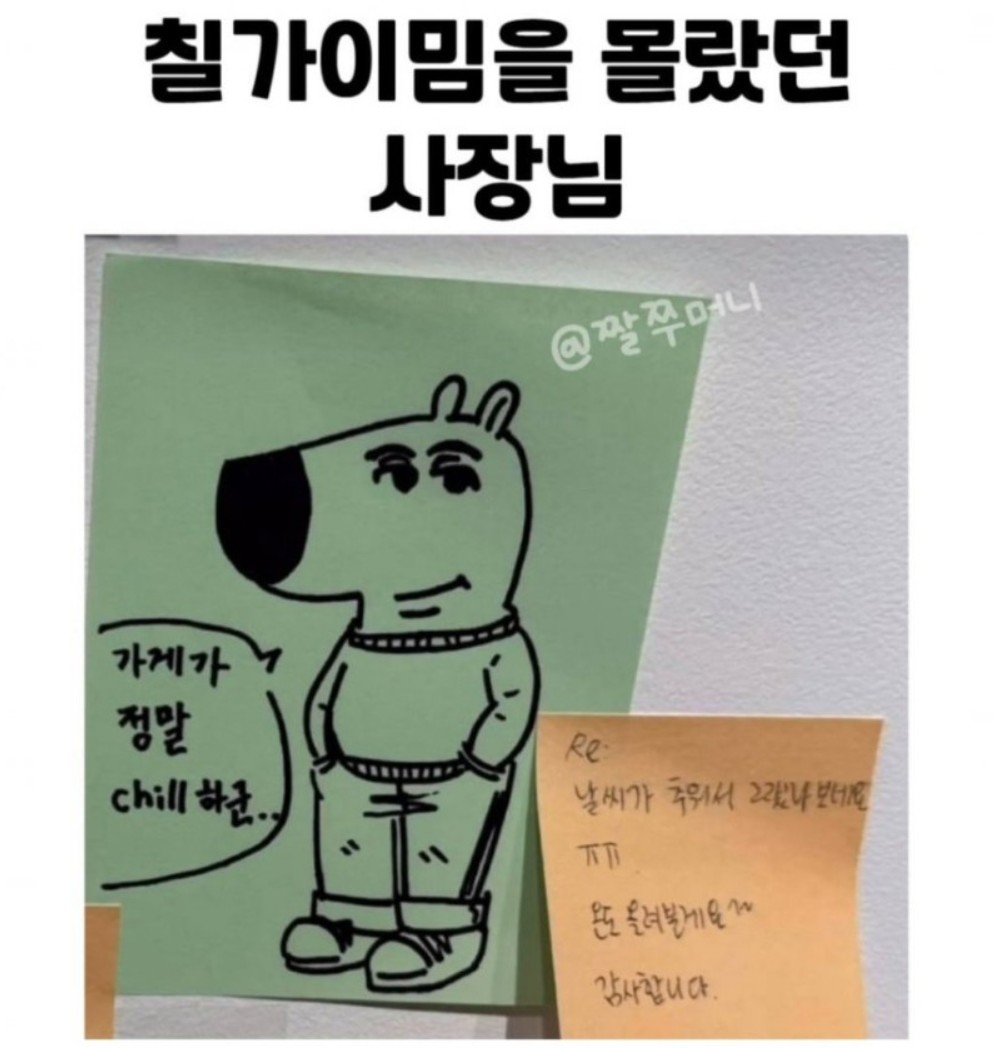 칠가이밈을 몰랐던
사장님
@짤쭈머니
가게가
정말
chill 하군..
Re:
날씨가 추워서 그랬나보네요
ㅠㅠ
온도 올려볼게요~
감사합니다.